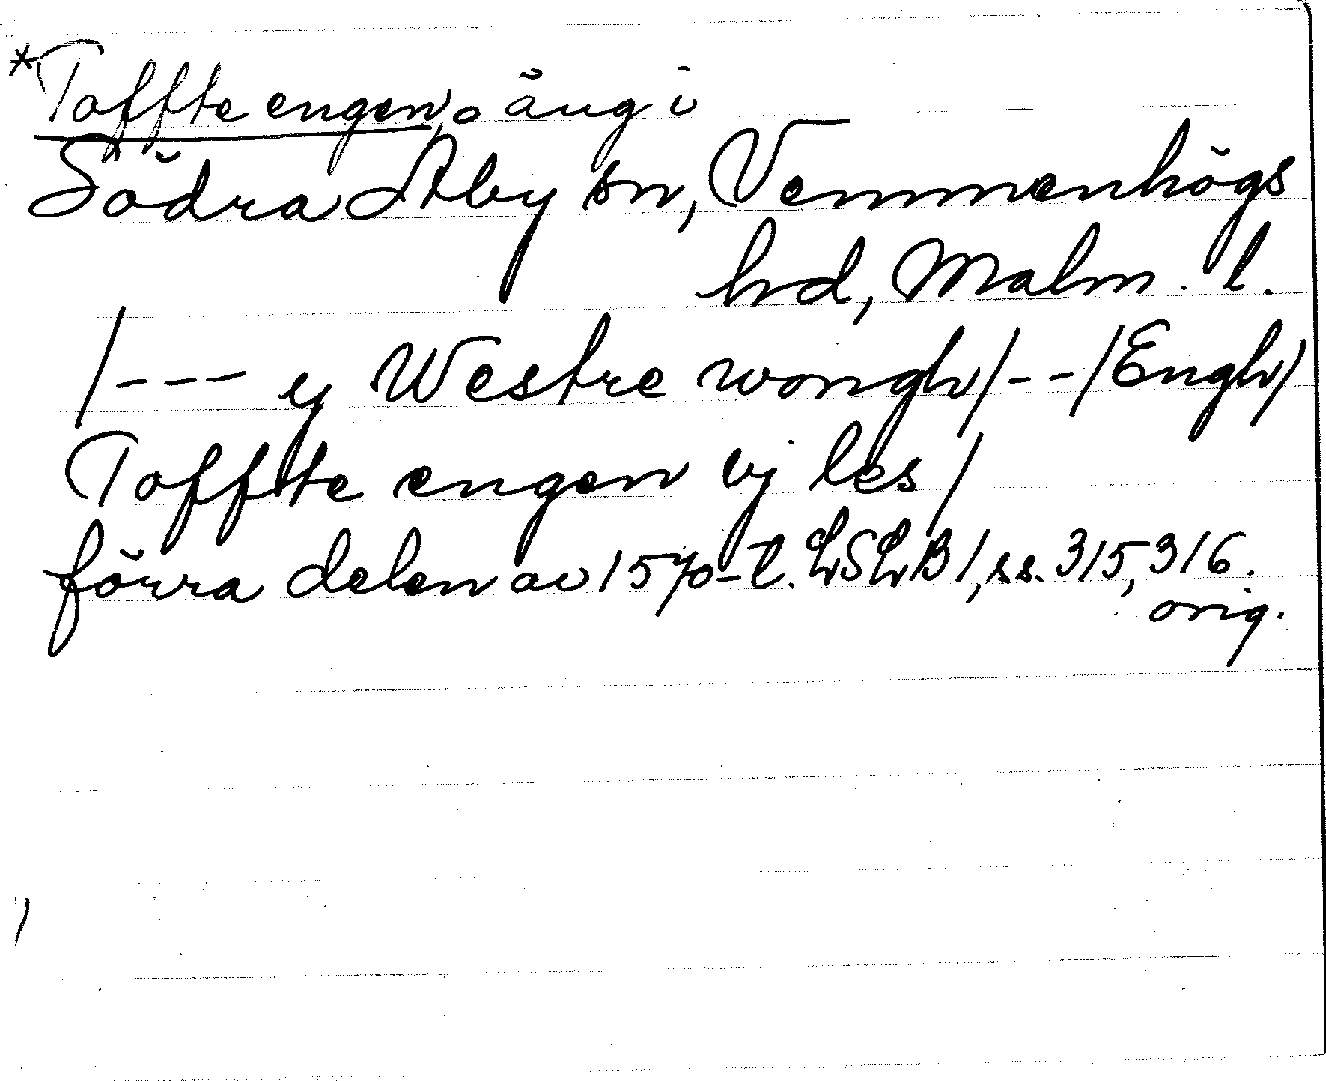 *Toffte engen, äng i
Södra Åby sn, Vemmenhögs
hd, Malm. l.
/--- y Westre wongh/--/Engh/
Toffte engen vj les/
förra delen av 1570-t. LSLB1, ss. 315, 316.
orig.